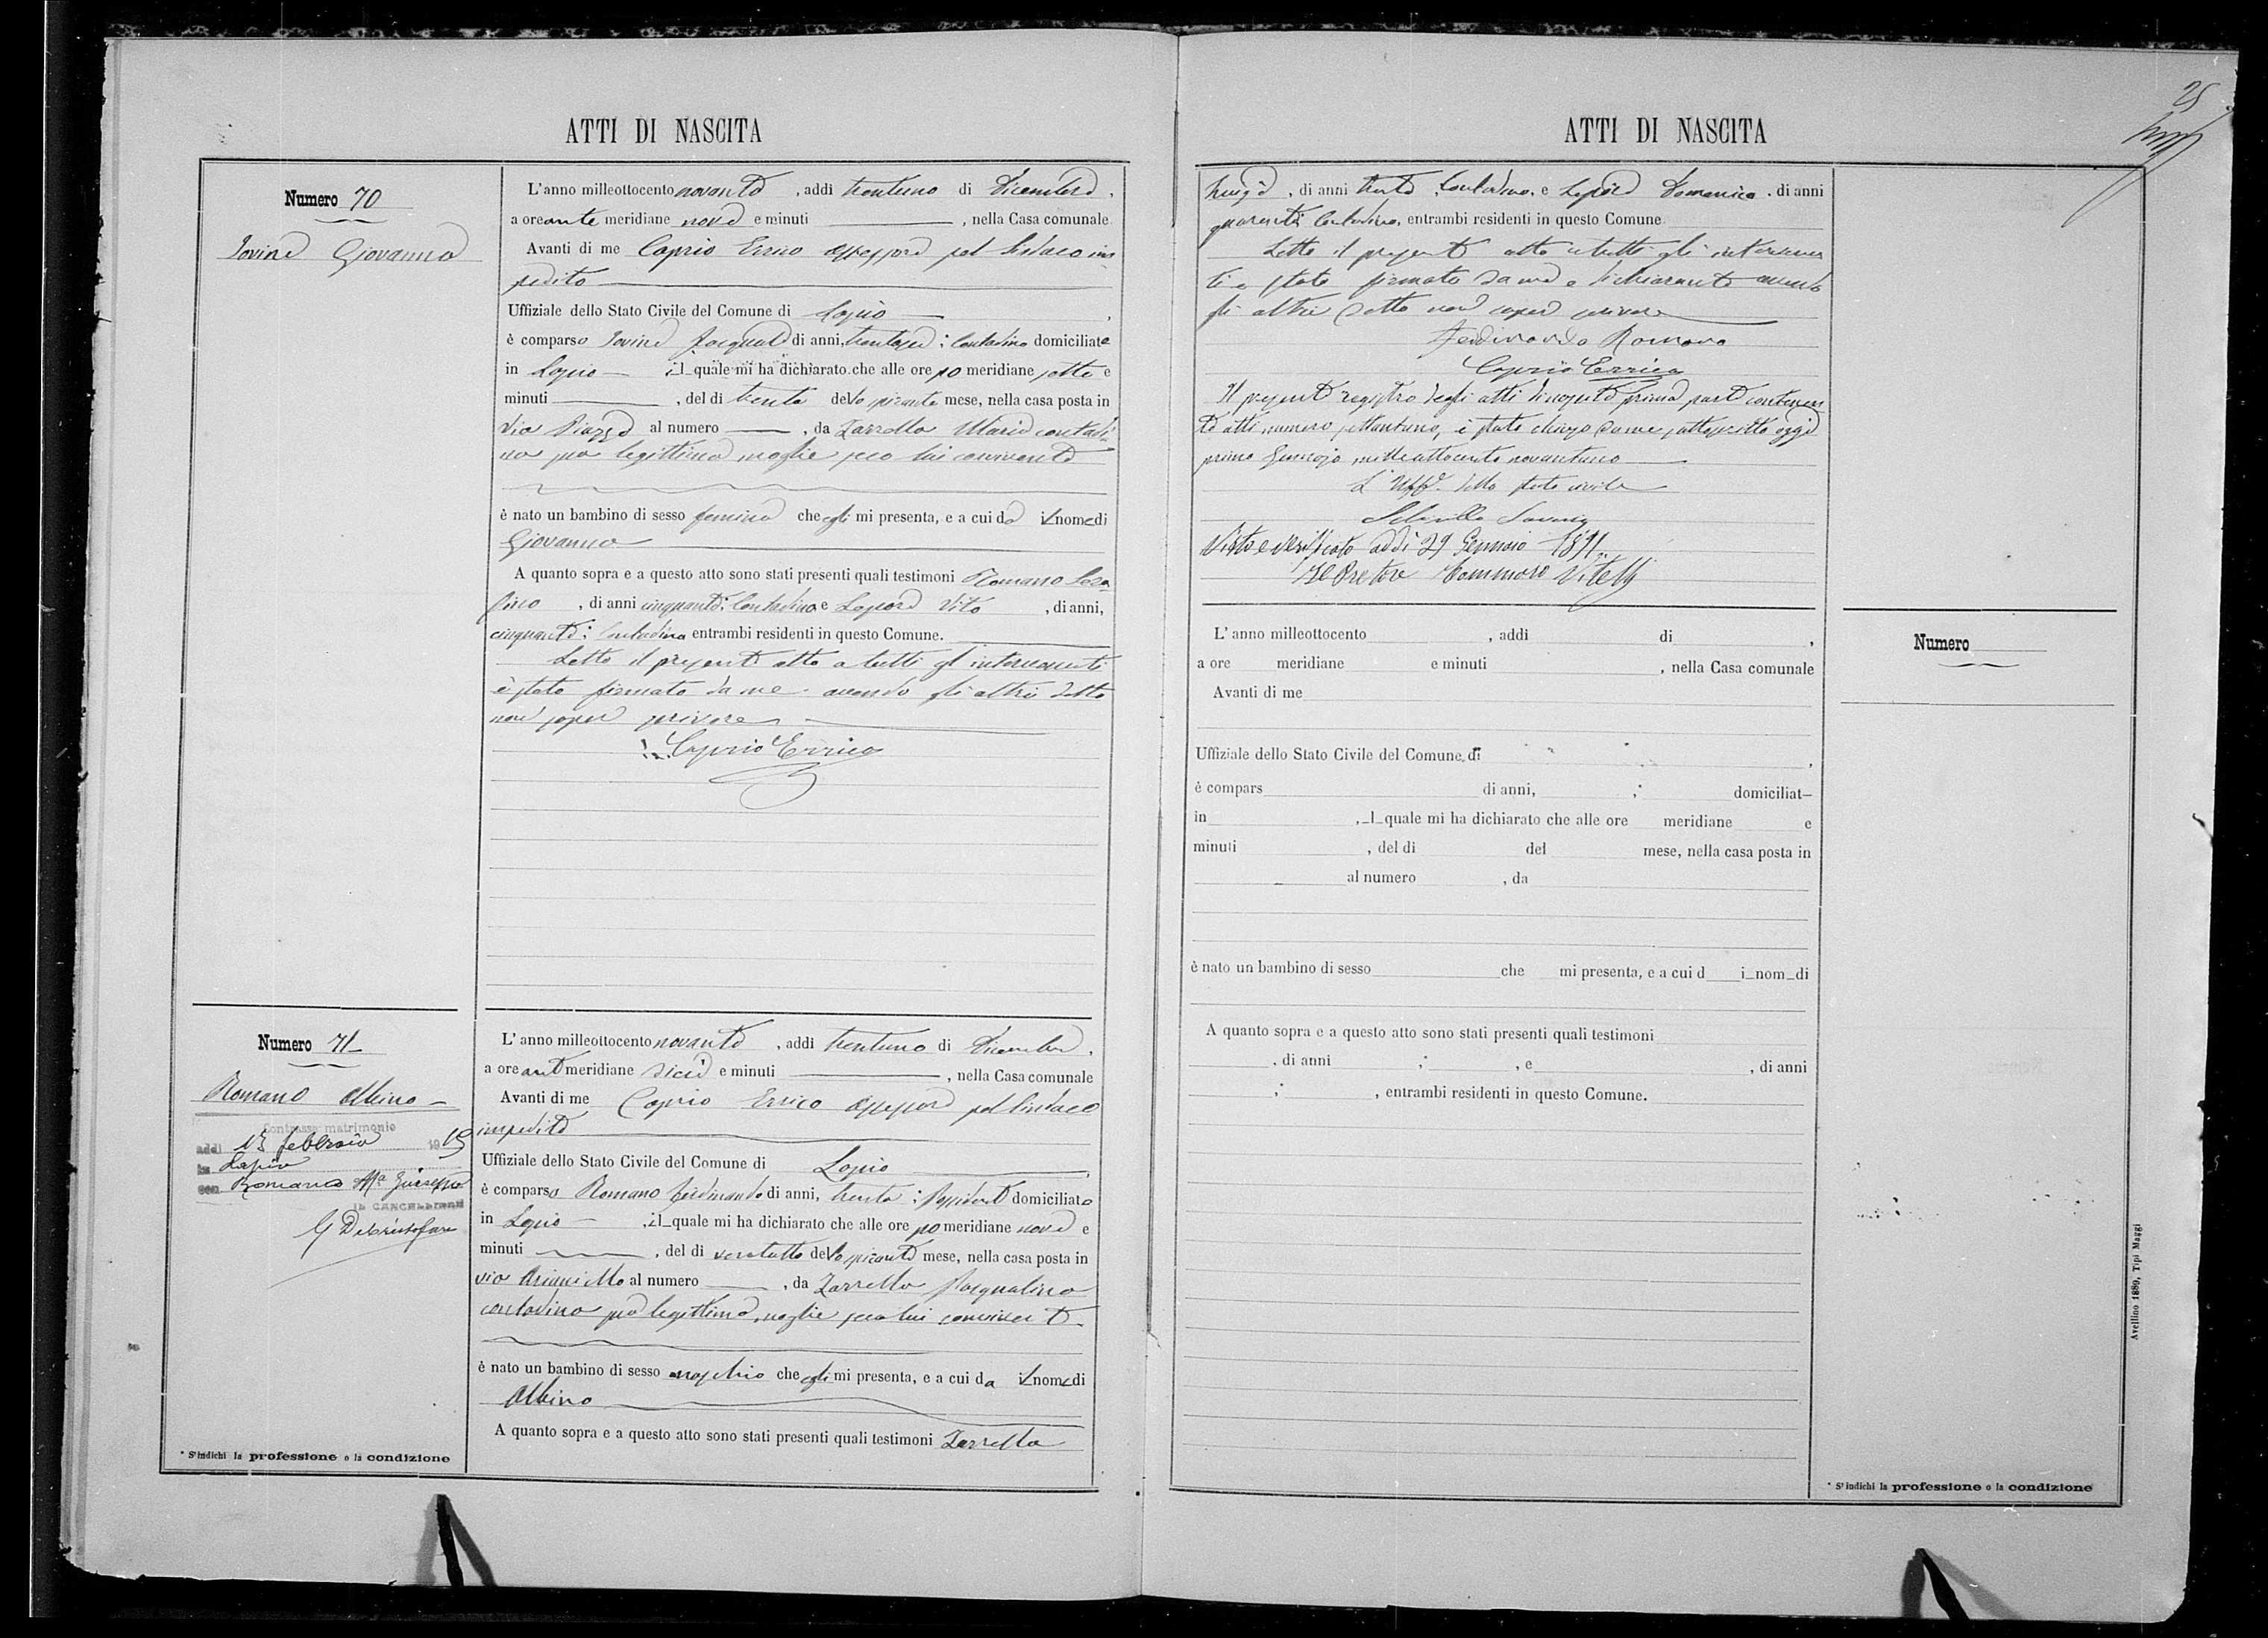 ATTI DI NASCITA
Numero 70
Iovine Giovanna
L'anno milleottocento novanta, addì trentuno di Dicembre,
a ore ante meridiane nove e minuti , nella Casa comunale.
Avanti di me Caprio Errico Assessore pel Sindaco im
pedito
Uffiziale dello Stato Civile del Comune di Lapio ,
è comparso Iovine Pasquale di anni, trentasei; Contadino domiciliato
in Lapio il quale mi ha dichiarato che alle ore po meridiane sette e
minuti , del di trenta dello spirante mese, nella casa posta in
via Piazza al numero , da Zarrella Maria contadi
na sua legittima moglie seco lui convivente
è nato un bambino di sesso femina che egli mi presenta, e a cui dà il nome di
Giovanna
A quanto sopra e a questo atto sono stati presenti quali testimoni Romano Sera
fino , di anni cinquanta; Contadino e Lepore Vito , di anni,
cinquanta; Contadino entrambi residenti in questo Comune.
Letto il presente atto a tutti gl'intervenuti
è stato firmato da me avendo gli altri detto
non saper scrivere
Caprio Errico
Numero 71
Romano Albino
Contrasse matrimonio
addì 13 febbraio 1919
in Lapio
con Romano Ma Giuseppa
IL CANCELLIERE
* S'indichi la professione o la condizione
L'anno milleottocento novanta, addì trentuno di Dicembre,
a ore ant meridiane dieci e minuti , nella Casa comunale
Avanti di me Caprio Errico Assessore pel Sindaco
impedito
Uffiziale dello Stato Civile del Comune di Lapio ,
è comparso Romano Ferdinando di anni, trenta; Possidente domiciliato
in Lapio , il quale mi ha dichiarato che alle ore po meridiane nove e
minuti , del di ventotto dello spirante mese, nella casa posta in
via al numero , da Zarrella Pasqualina
contadina sua legittima moglie seco lui convivente
è nato un bambino di sesso maschio che egli mi presenta, e a cui da il nome di
Albino
A quanto sopra e a questo atto sono stati presenti quali testimoni Zarrella
25
ATTI DI NASCITA
Luigi, di anni trenta, Contadino, e Lepore Domenico, di anni
quaranta Contadino, entrambi residenti in questo Comune
Letto il presente atto a tutti gli intervenu
ti è stato firmato da me e dichiarante avendo
gli altri detto non saper scrivere
Ferdinando Romano
Caprio Errico
Il presente registro degli atti di nascita prima parte contenen
te atti numero settantuno, è stato chiuso da me sottoscritto oggi
primo Gennajo milleottocento novantuno
L'Uff. dello stato civile
Visto e verificato addì 29 Gennaio 1891
Il Pretore Tommaso Vitelli
Numero
L'anno milleottocento , addì di ,
a ore meridiane e minuti , nella Casa comunale
Avanti di me
Uffiziale dello Stato Civile del Comune di ,
è compars di anni, ; domiciliat
in , l quale mi ha dichiarato che alle ore meridiane e
minuti , del di del mese, nella casa posta in
al numero , da
è nato un bambino di sesso che mi presenta, e a cui d i nom di
A quanto sopra e a questo atto sono stati presenti quali testimoni
, di anni ; , e , di anni
; , entrambi residenti in questo Comune.
Avellino 1889, Tipi Maggi
* S'indichi la professione o la condizione